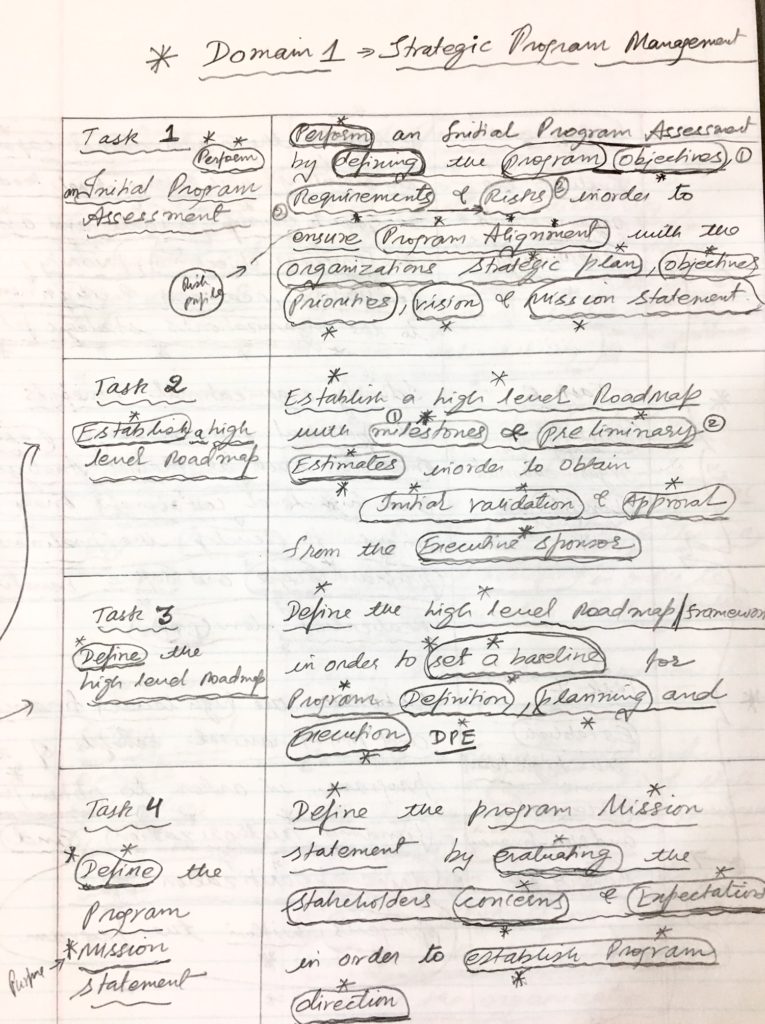 * Domain 1 → Strategic Program Management
Task 1 * *
Perform
an Initial Program
Assessment
Risk
profile
*
Perform an Initial Program Assessment
by defining the program objectives, ①
② Requirements & Risks ③ inorder to
ensure Program Alignment with the
organizations Strategic plan, objectives
Priorities, vision & Mission Statement.
* * *
Task 2
Establish a high
level Roadmap
* *
Establish a high level Roadmap
with ① milestones & preliminary ②
Estimates inorder to obtain
* * *
Initial validation & Approval
from the Executive Sponsor
Task 3
* Define the
high level Roadmap
* *
Define the high level Roadmap/framewor
in order to set a baseline for
Program Definition, planning and
Execution DPE
*
Task 4
* Define the
Program
Purpose → * Mission
statement
* *
Define the program Mission
statement by evaluating the
stakeholders concerns & Expectation
in order to establish Program
*
direction